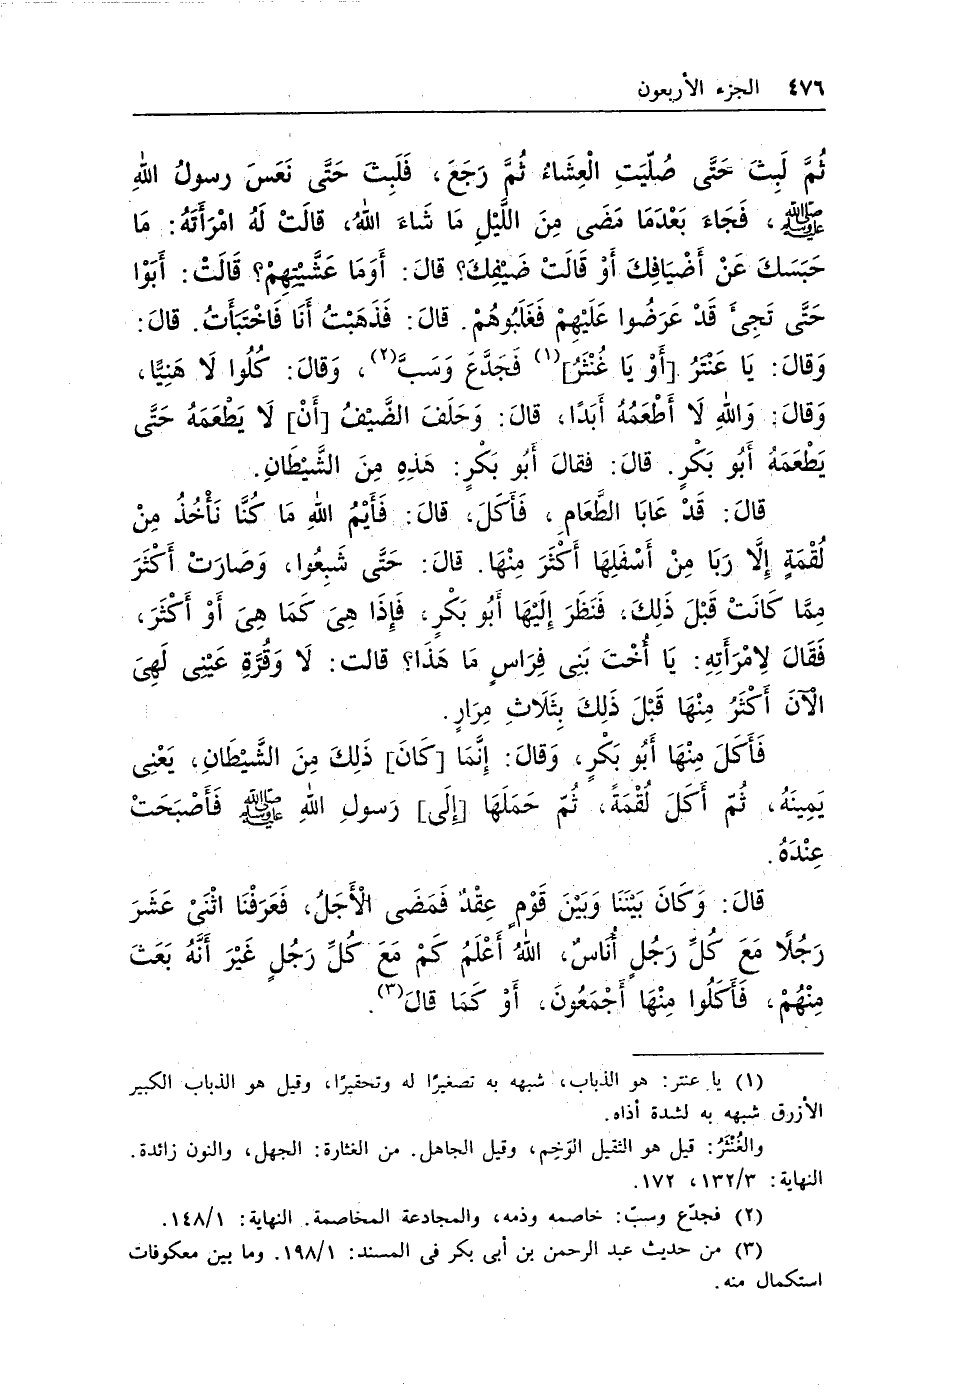 ٤٧٦ الجزء الأربعون
ثُمَّ لَبِثَ حَتَّى صُلّيَتِ الْعِشَاءُ ثُمَّ رَجَعَ، فَلَبِثَ حَتَّى نَعَسَ رسولُ اللهِ
ﷺ، فَجَاءَ بَعْدَمَا مَضَى مِنَ اللَّيْلِ مَا شَاءَ اللهُ، قالَتْ لَهُ امْرَأَتَهُ: مَا
حَبَسَكَ عَنْ أَضْيَافِكَ أَوْ قَالَتْ ضَيْفِكَ؟ قالَ: أَوَمَا عَشَّيْتِهِمْ؟ قَالَتْ: أَبَوْا
حَتَّى تَجِىُٔ قَدْ عَرَضُوا عَلَيْهِمْ فَغَلَبُوهُمْ. قالَ: فَذَهَبْتُ أَنَا فَاخْتَبَأْتُ. قالَ:
وَقالَ: يَا عَنْتَرُ [أَوْ يَا غُنْثَرُ](١) فَجَدَّعَ وَسَبَّ(٢)، وَقالَ: كُلُوا لَا هَنِيًّا،
وَقالَ: وَاللهِ لَا أَطْعَمُهُ أَبَدًا، قالَ: وَحَلَفَ الضَّيْفُ [أَنْ] لَا يَطْعَمَهُ حَتَّى
يَطْعَمَهُ أَبُو بَكْرٍ. قالَ: فقالَ أَبُو بَكْرٍ: هَذِهِ مِنَ الشَّيْطَانِ.
قالَ: قَدْ عَابَا الطَّعَامِ، فَأَكَلَ، قالَ: فَأَيْمُ اللهِ مَا كُنَّا نَأْخُذُ مِنْ
لُقْمَةٍ إِلَّا رَبَا مِنْ أَسْفَلِهَا أَكْثَرَ مِنْهَا. قالَ: حَتَّى شَبِعُوا، وَصَارَتْ أَكْثَرَ
مِمَّا كَانَتْ قَبْلَ ذَلِكَ، فَنَظَرَ إِلَيْهَا أَبُو بَكْرٍ، فَإِذَا هِىَ كَمَا هِىَ أَوْ أَكْثَرَ،
فَقَالَ لِامْرَأَتِهِ: يَا أُخْتَ بَنِى فِرَاسٍ مَا هَذَا؟ قالت: لَا وَقُرَّةِ عَيْنِى لَهِىَ
الْآنَ أَكْثَرُ مِنْهَا قَبْلَ ذَلِكَ بِثَلَاثِ مِرَارٍ.
فَأَكَلَ مِنْهَا أَبُو بَكْرٍ، وَقالَ: إِنَّمَا [كَانَ] ذَلِكَ مِنَ الشَّيْطَانِ، يَعْنِى
يَمِينَهُ، ثُمّ أَكَلَ لُقْمَةً، ثُمّ حَمَلَهَا [إِلَى] رَسولِ اللهِ ﷺ فَأَصْبَحَتْ
عِنْدَهُ.
قالَ: وَكَانَ بَيْنَنَا وَبَيْنَ قَوْمٍ عِقْدٌ فَمَضَى الْأَجَلُ، فَعَرَفْنَا اثْنَىْ عَشَرَ
رَجُلًا مَعَ كُلِّ رَجُلٍ أُنَاسٌ، اللهُ أَعْلَمُ كَمْ مَعَ كُلِّ رَجُلٍ غَيْرَ أَنَّهُ بَعَثَ
مِنْهُمْ، فَأَكَلُوا مِنْهَا أَجْمَعُونَ، أَوْ كَمَا قالَ(٣).
(١) يا عنتر: هو الذباب، شبهه به تصغيرًا له وتحقيرًا، وقيل هو الذباب الكبير
الأزرق شبهه به لشدة أذاه.
والغُنْثَرُ: قيل هو الثقيل الوَخِم، وقيل الجاهل. من الغثارة: الجهل، والنون زائدة.
النهاية: ١٣٢/٣، ١٧٢.
(٢) فجدّع وسبّ: خاصمه وذمه، والمجادعة المخاصمة. النهاية: ١٤٨/١.
(٣) من حديث عبد الرحمن بن أبى بكر فى المسند: ١٩٨/١. وما بين معكوفات
استكمال منه.